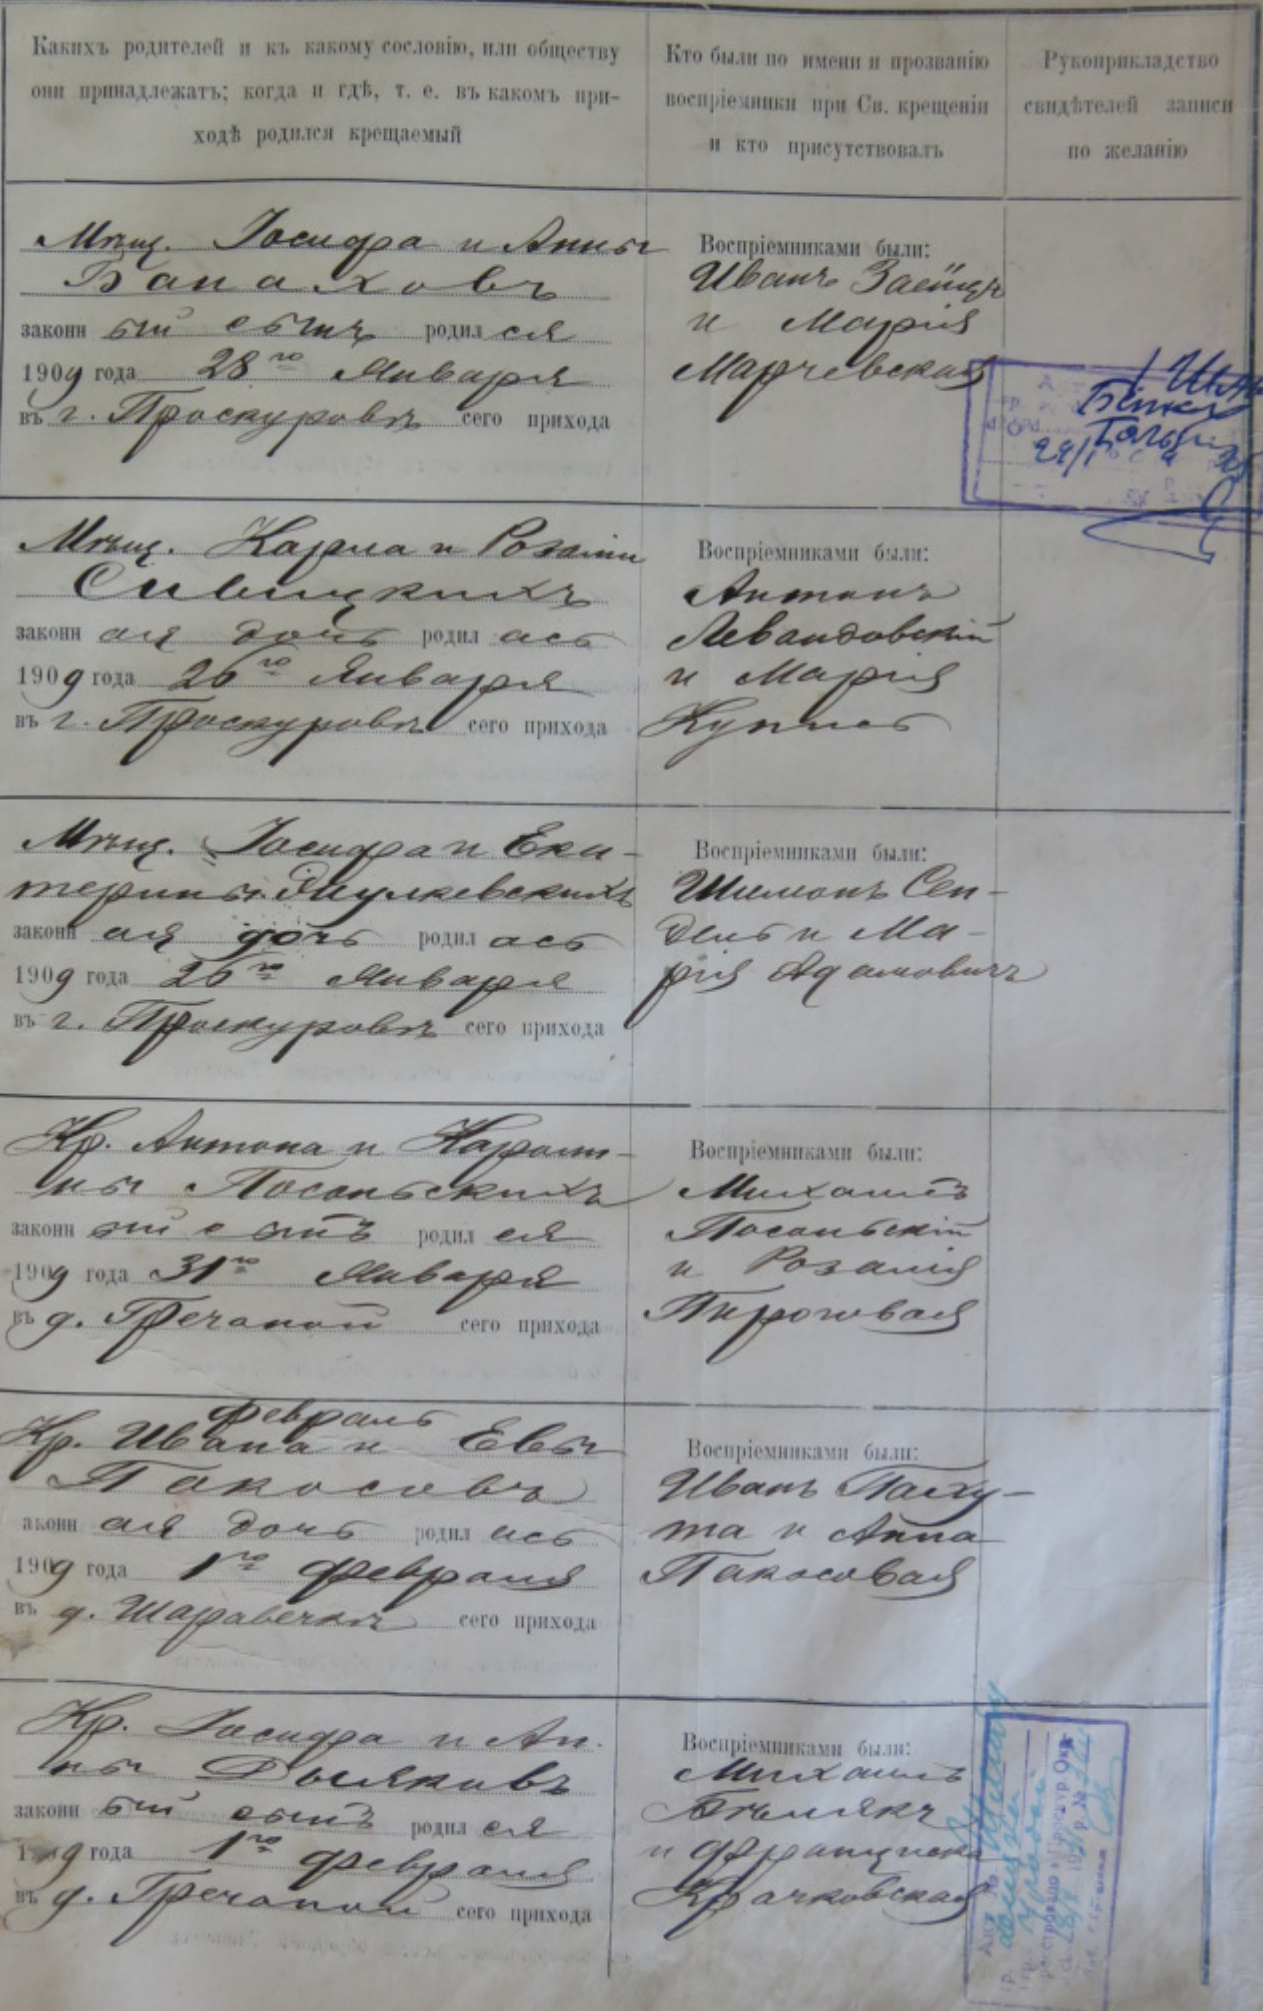 Какихъ родителей и къ какому сословію, или обществу
они принадлежатъ; когда и гдѣ, т. е. въ какомъ при-
ходѣ родился крещаемый
Кто были по имени и прозванію
воспріемники при Св. крещеніи
и кто присутствовалъ
Рукоприкладство
свидѣтелей записи
по желанію
Мѣщ. Іосифа и Анны
Банаховъ
законн ый сынъ родил ся
1909 года 28го Января
въ г. Проскуровѣ сего прихода
Воспріемниками были:
Иванъ Заёнцъ
и Марія
Марчевская
Мѣщ. Карла и Розаліи
Сивицкихъ
законн ая дочь родил ась
1909 года 26го Января
въ г. Проскуровѣ сего прихода
Воспріемниками были:
Антонъ
Левандовскій
и Марія
Купись
Мѣщ. Іосифа и Ека-
терины
законн ая дочь родил ась
1909 года 26го Января
въ г. Проскуровѣ сего прихода
Воспріемниками были:
Шимонъ Сен-
дель и Ма-
рія Адамовичъ
Кр. Антона и Кароли-
ны Посопьскихъ
законн ый сынъ родил ся
1909 года 31го Января
въ д. Гречаной сего прихода
Воспріемниками были:
Михаилъ
Посопьскій
и Розалія
Пироговая
Февраль
Кр. Ивана и Евы
Пакосовъ
аконн ая дочь родил ась
1909 года 1го Февраля
въ д. Шаравечкѣ сего прихода
Воспріемниками были:
Иванъ Палху-
та и Анна
Пакосовая
Кр. Іосифа и Ан-
ны
законн ый сынъ родил ся
1909 года 1го Февраля
въ д. Гречаной сего прихода
Воспріемниками были:
Михаилъ
Бѣлякъ
и Францишка
Крачковская